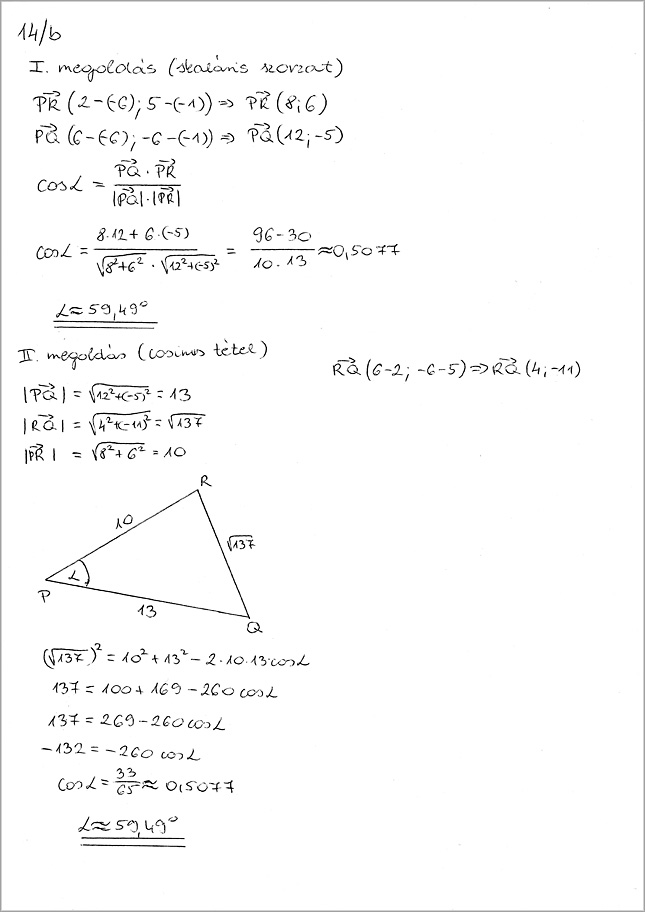 14/b
I. megoldás (skaláris szorzat)
PR→ (2-(-6); 5-(-1)) ⇒ PR→ (8; 6)
PQ→ (6-(-6); -6-(-1)) ⇒ PQ→ (12; -5)
cos α = (PQ→ · PR→) / (|PQ→| · |PR→|)
cos α = (8·12 + 6·(-5)) / (√(8²+6²) · √(12²+(-5)²)) = (96-30) / (10·13) ≈ 0,5077
α ≈ 59,49°
II. megoldás (cosinus tétel)
RQ→ (6-2; -6-5) ⇒ RQ→ (4; -11)
|PQ→| = √(12²+(-5)²) = 13
|RQ→| = √(4²+(-11)²) = √137
|PR→| = √(8²+6²) = 10
R
10
√137
α
P
13
Q
(√137)² = 10² + 13² - 2·10·13·cos α
137 = 100 + 169 - 260 cos α
137 = 269 - 260 cos α
-132 = -260 cos α
cos α = 33/65 ≈ 0,5077
α ≈ 59,49°